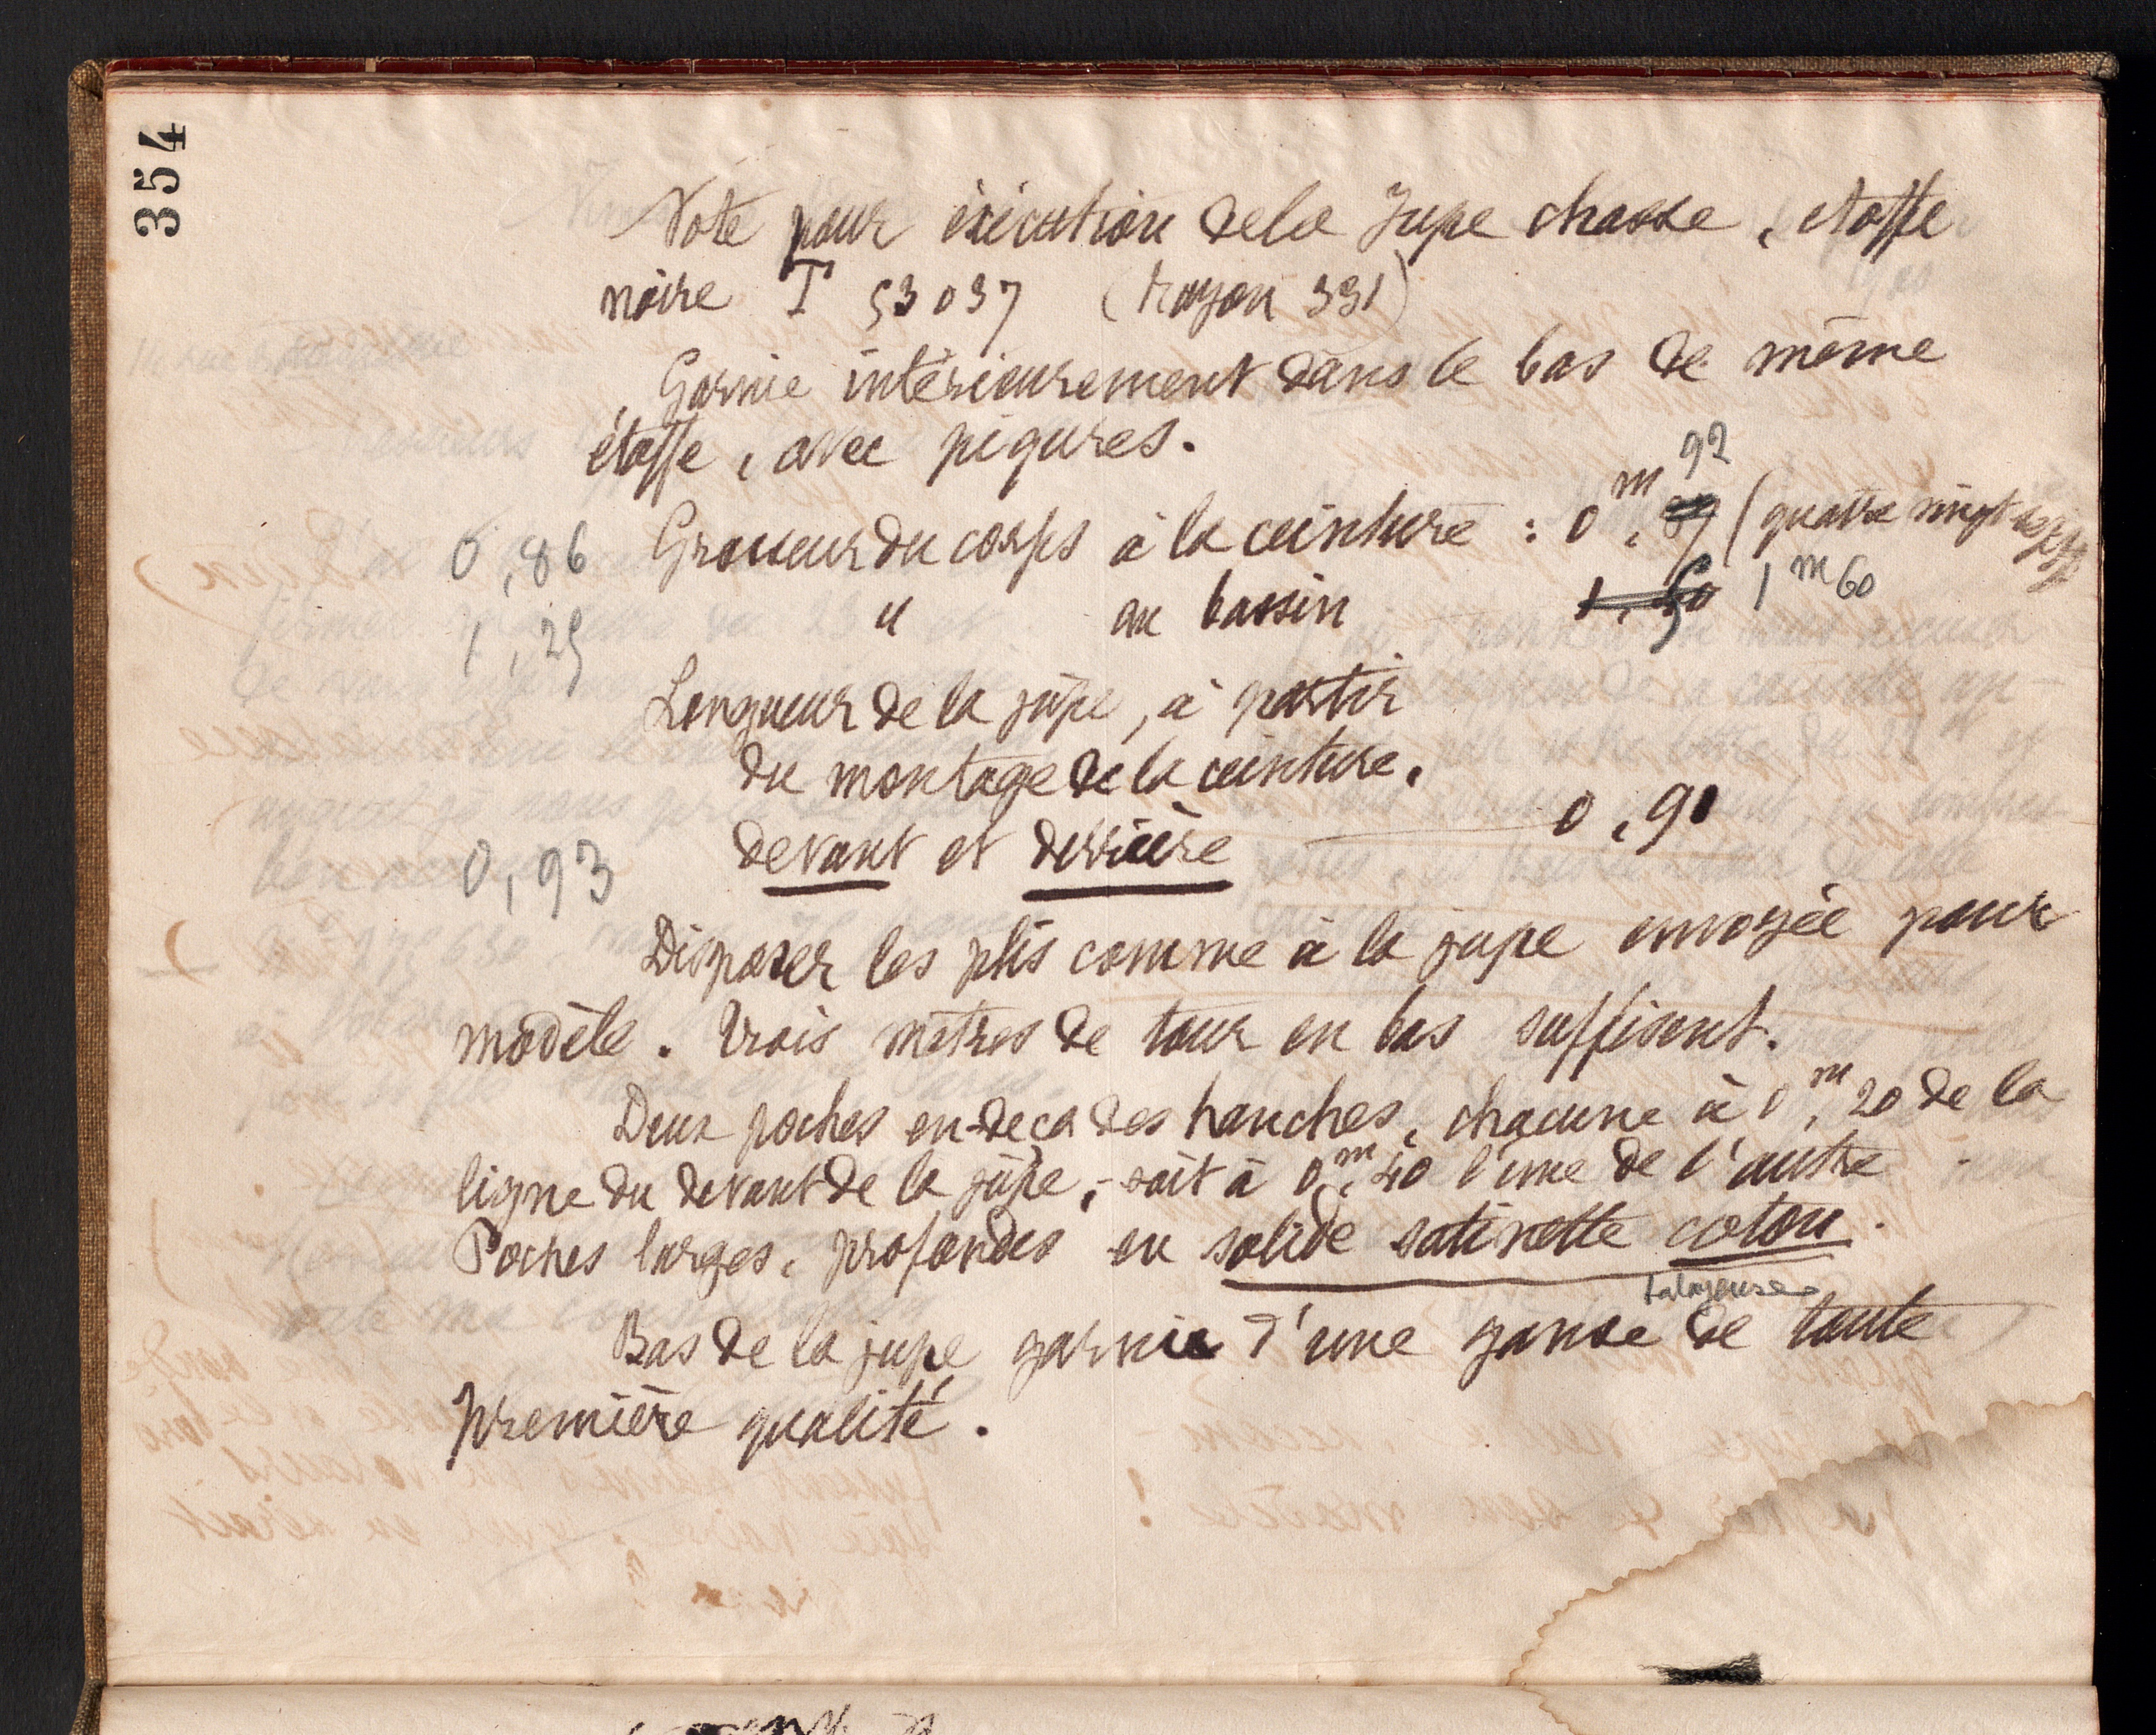 354
Note pour éxécution de la Jupe chasse, étoffe
noire T 53037 (rayon 331)
Garnie intérieurement dans le bas de même
étoffe, avec piqures.
92
0,86 Grosseur du corps à la ceinture : 0m, (quatre vingt
1,25 " au bassin 1,50 1m60
Longueur de la jupe, à partir
du montage de la ceinture,
0,93 devant et derrière 0,90
Disposer les plis comme à la jupe envoyée pour
modèle. Trois mètres de tour en bas suffisent.
Deux poches en-deçà des hanches, chacune à 0m,20 de la
ligne du devant de la jupe, soit à 0m,40 l'une de l'autre
Poches larges, profondes en solide satinette coton.
balayeuse
Bas de la jupe garnie d'une ganse de toute
première qualité.